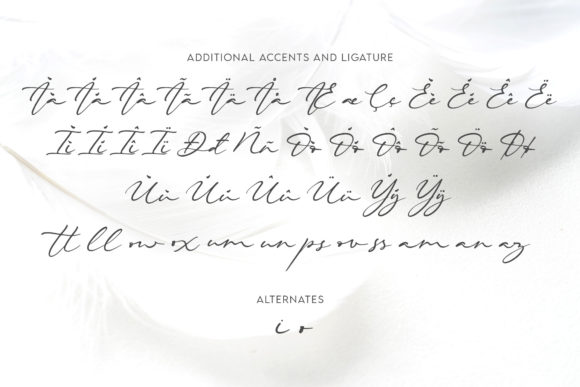 ADDITIONAL ACCENTS AND LIGATURE
Àà Áá Ââ Ãã Ää Åå Æ æ Ç ç Èè Éé Êê Ëë
Ìì Íí Îî Ïï Đđ Ññ Òò Óó Ôô Õõ Öö Øø
Ùù Úú Ûû Üü Ýý Ÿÿ
tt ll ow ox um un ps ov ss am an az
ALTERNATES
i